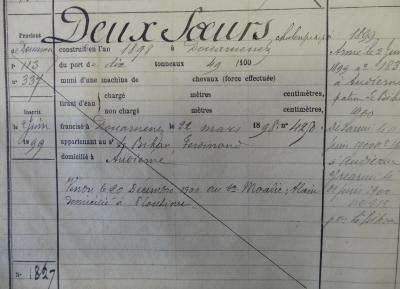 Deux Sœurs, chaloupe pontée
Provient
de Douarnenez
n° 113
n° 337
Inscrit
le 2 juin
1899
N° 1827
construit en l'an 1898 à Douarnenez
du port de dix tonneaux 49 /100
muni d'une machine de chevaux (force effectuée)
tirant d'eau
chargé mètres centimètres,
non chargé mètres centimètres,
francisé à Douarnenez le 22 mars 1898. n° 4250
appartenant à M. Le Bihan, Ferdinand
domicilié à Audierne
Vendu le 20 Décembre 1900 au Sr Moalic, Alain
domicilié à Plouhinec
1899
Armé le 2 juin
1899 n° 183
à Audierne
patron Le Bihan
1900
Désarmé le
juin 1900
à Audierne
Réarmé le
juin 1900
Le Bihan